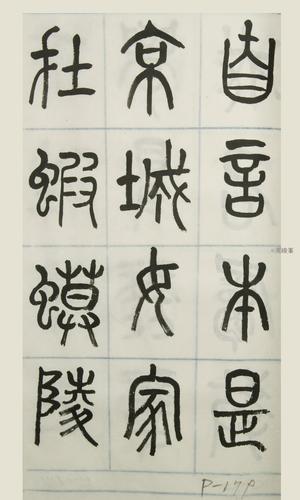 自言本是
京城女家
在蝦蟆陵
P-179